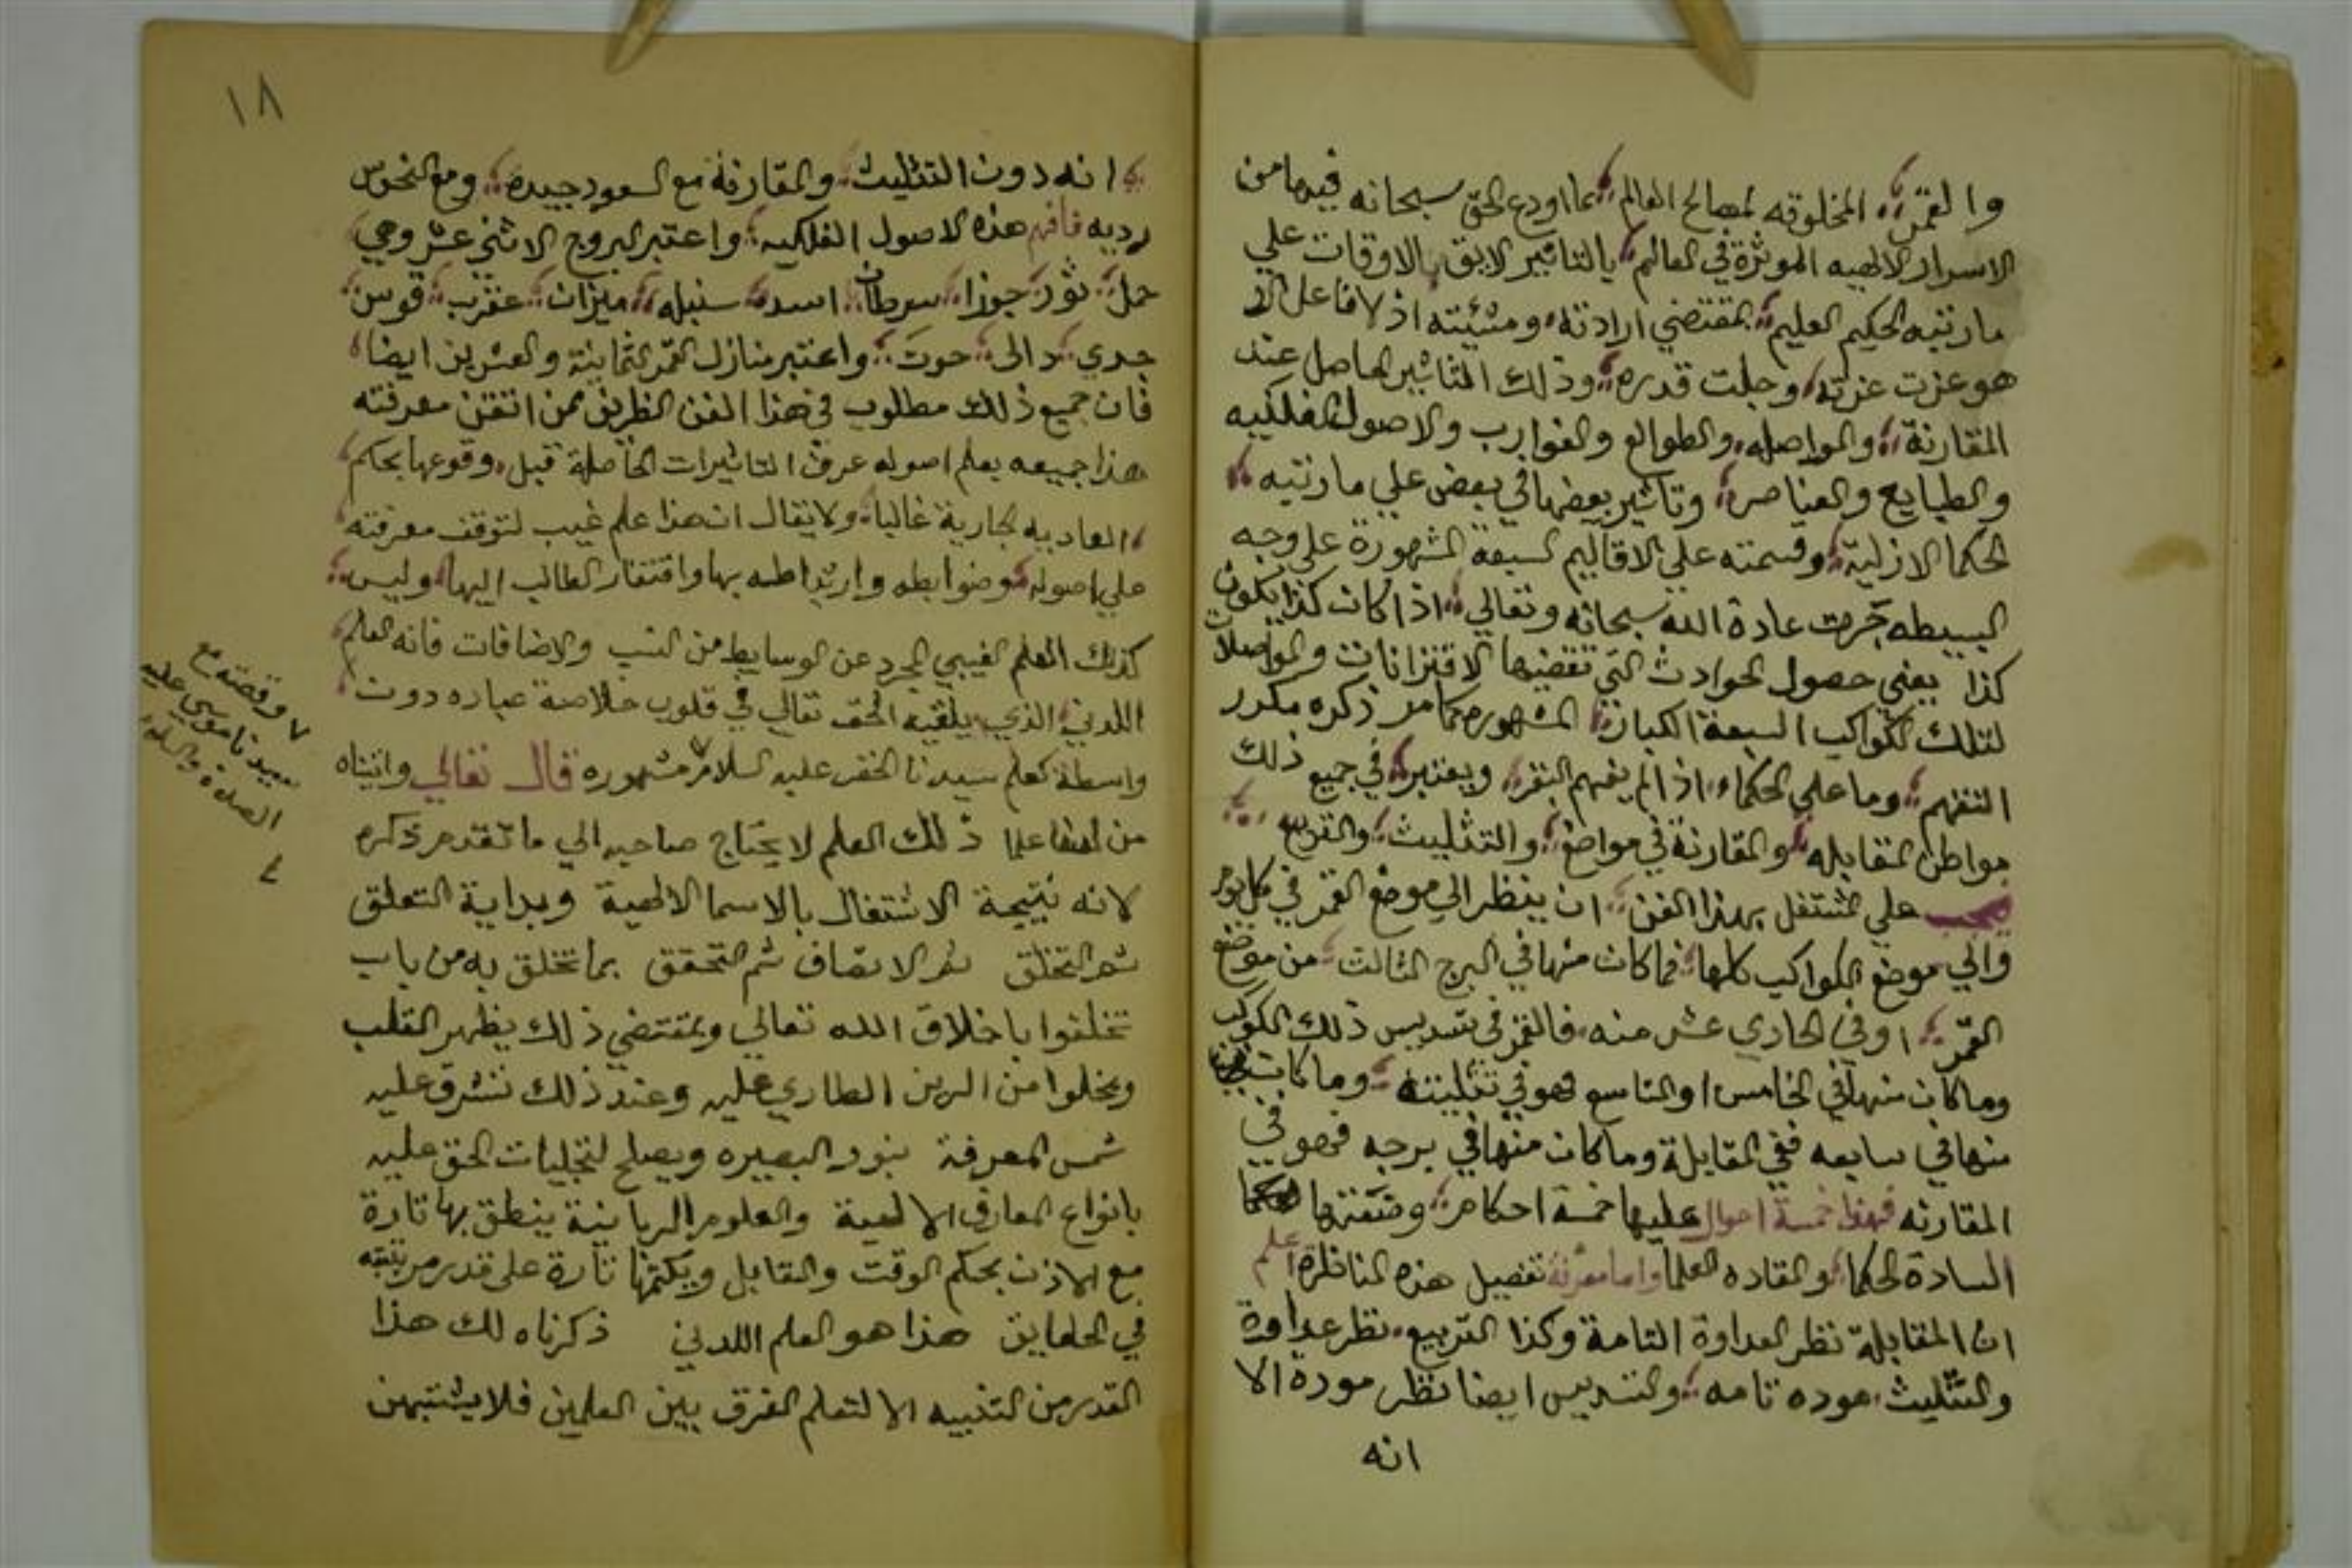 والقمر المخلوقه لمصالح العالم بما اودع الحق سبحانه فيها من
الاسرار الالهيه الموثرة في العالم بالتاثير الايق بالاوقات علي
ما رتبه الحكيم العليم بمقتضي ارادته ومشيئته اذ لا فاعل الا
هو عزت عزته وجلت قدره وذلك التاثير الحاصل عند
المقارنة والمواصله والطوالع والغوارب والاصول الفلكيه
والطبايع والعناصر وتاثير بعضها في بعض علي ما رتبه
الحكما الازلية وقسمته علي الاقاليم السبعة المشهورة علي وجه
البسيطه جرت عادة الله سبحانه وتعالي اذا كان كذا يكون
كذا يعني حصول الحوادث التي تقضيها الاقترانات والمواصلات
لتلك الكواكب السبعة الكبار المشهوره كما مر ذكره مكرر
التفهم وما علي الحكماء اذا لم يفهم البقر ويعتبر في جميع ذلك
مواطن المقابله والمقارنة في مواضع والتثليث والتربيع
فيجب علي المشتغل بهذا الفن ان ينظر الي موضع القمر في كل يوم
والي موضع الكواكب كلها فما كان منها في البرج الثالث من موضع
القمر او في الحادي عشر منه فالقمر في تسديس ذلك الكوكب
وما كان منها في الخامس او التاسع فهو في تثليثه وما كان
منها في سابعه ففي المقابلة وما كان منها في برجه فهو في
المقارنه فهذا خمسة احوال عليها خمسة احكام وضعتها
السادة الحكما والقاده العلما واما معرفة تفصيل هذه المناظرة اعلم
ان المقابلة نظر العداوة التامة وكذا التربيع نظر عداوة
والتثليث موده تامه والتسديس ايضا نظر مودة الا
انه
١٨
انه دون التثليث والمقارنة مع السعود جيده ومع النحوس
رديه فافهم هذه الاصول الفلكيه واعتبر البروج الاثني عشر وهي
حمل ثور جوزا سرطان اسد سنبله ميزان عقرب قوس
جدي دالي حوت واعتبر منازل القمر الثمانية والعشرين ايضا
فان جميع ذلك مطلوب في هذا الفن الظريف فمن اتقن معرفته
هذا جميعه بعلم اصوله عرف التاثيرات الحاصلة قبل وقوعها بحكم
العاديه الجارية غالبا ولا يقال ان هذا علم غيب لتوقف معرفته
علي اصوله وضوابطه وارتباطه بها وافتقار الطالب اليها وليس
كذلك العلم الغيبي المجرد عن الوسايط من النسب والاضافات فانه العلم
اللدني الذي يلقيه الحق تعالي في قلوب خلاصة عباده دون
واسطة كعلم سيدنا الخضر عليه السلام مشهوره قال تعالي واتيناه
من لدنا علما ذلك العلم لا يحتاج صاحبه الي ما تقدم ذكره
لانه نتيجة الاشتغال بالاسما الالهية وبداية التعلق
ثم التخلق ثم الاتصاف ثم التحقق بما تخلق به من باب
تخلقوا باخلاق الله تعالي وبمقتضي ذلك يظهر القلب
ويخلوا من الرين الطاري عليه وعند ذلك تشرق عليه
شمس المعرفة بنور البصيره ويصلح لتجليات الحق عليه
بانواع المعارف الالهية والعلوم الربانية ينطق بها تارة
مع الاذن بحكم الوقت والقابل ويكتمها تارة علي قدر مرتبته
في الحقايق هذا هو العلم اللدني ذكرناه لك هذا
القدر من التنبيه الا لتعلم الفرق بين العلمين فلا يشتبهن
وقصته مع
سيدنا موسي عليه
الصلاة والسلام